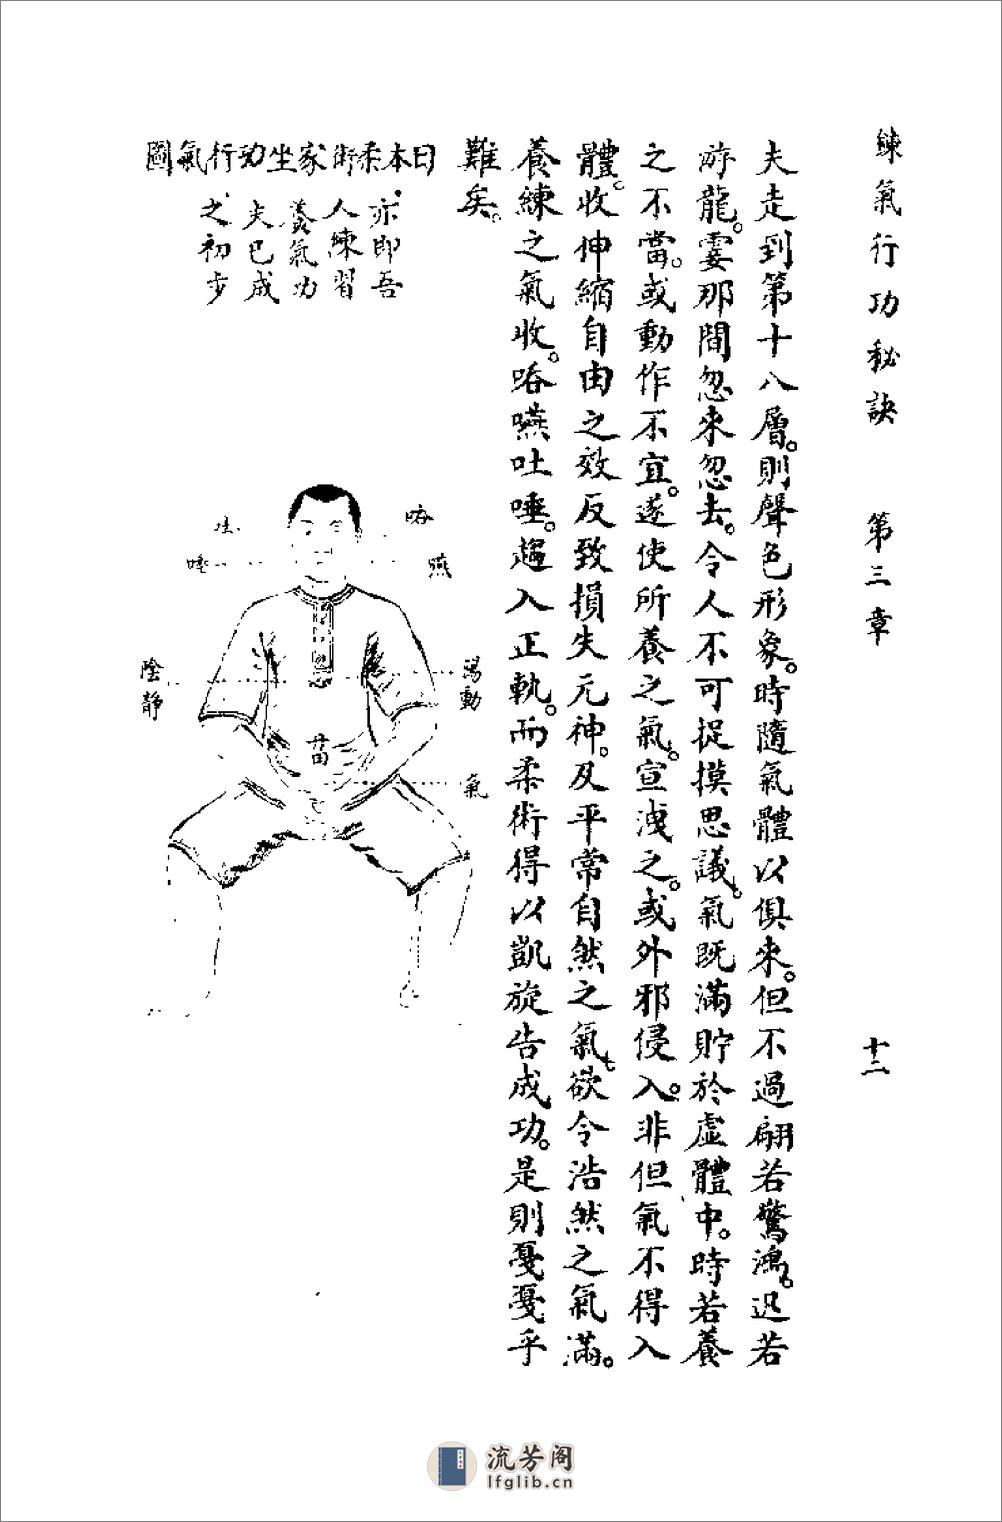 鍊氣行功秘訣 第三章 十二
夫走到第十八層。則聲色形象。時隨氣體以俱來。但不過翩若驚鴻。迅若
游龍。霎那間忽來忽去。令人不可捉摸思議。氣既滿貯於虛體中。時若養
之不當。或動作不宜。遂使所養之氣。宣洩之。或外邪侵入。非但氣不得入
體。收伸縮自由之效反致損失元神。及平常自然之氣。欲令浩然之氣滿。
養練之氣收。咯嚥吐唾。趨入正軌。而柔術得以凱旋告成功。是則戛戛乎
難矣。
日本柔術家坐功行氣圖
亦即吾
人練習
養氣功
夫已成
之初步
咯
嚥
唾
陰靜
陽動
氣
流芳阁
lfglib.cn